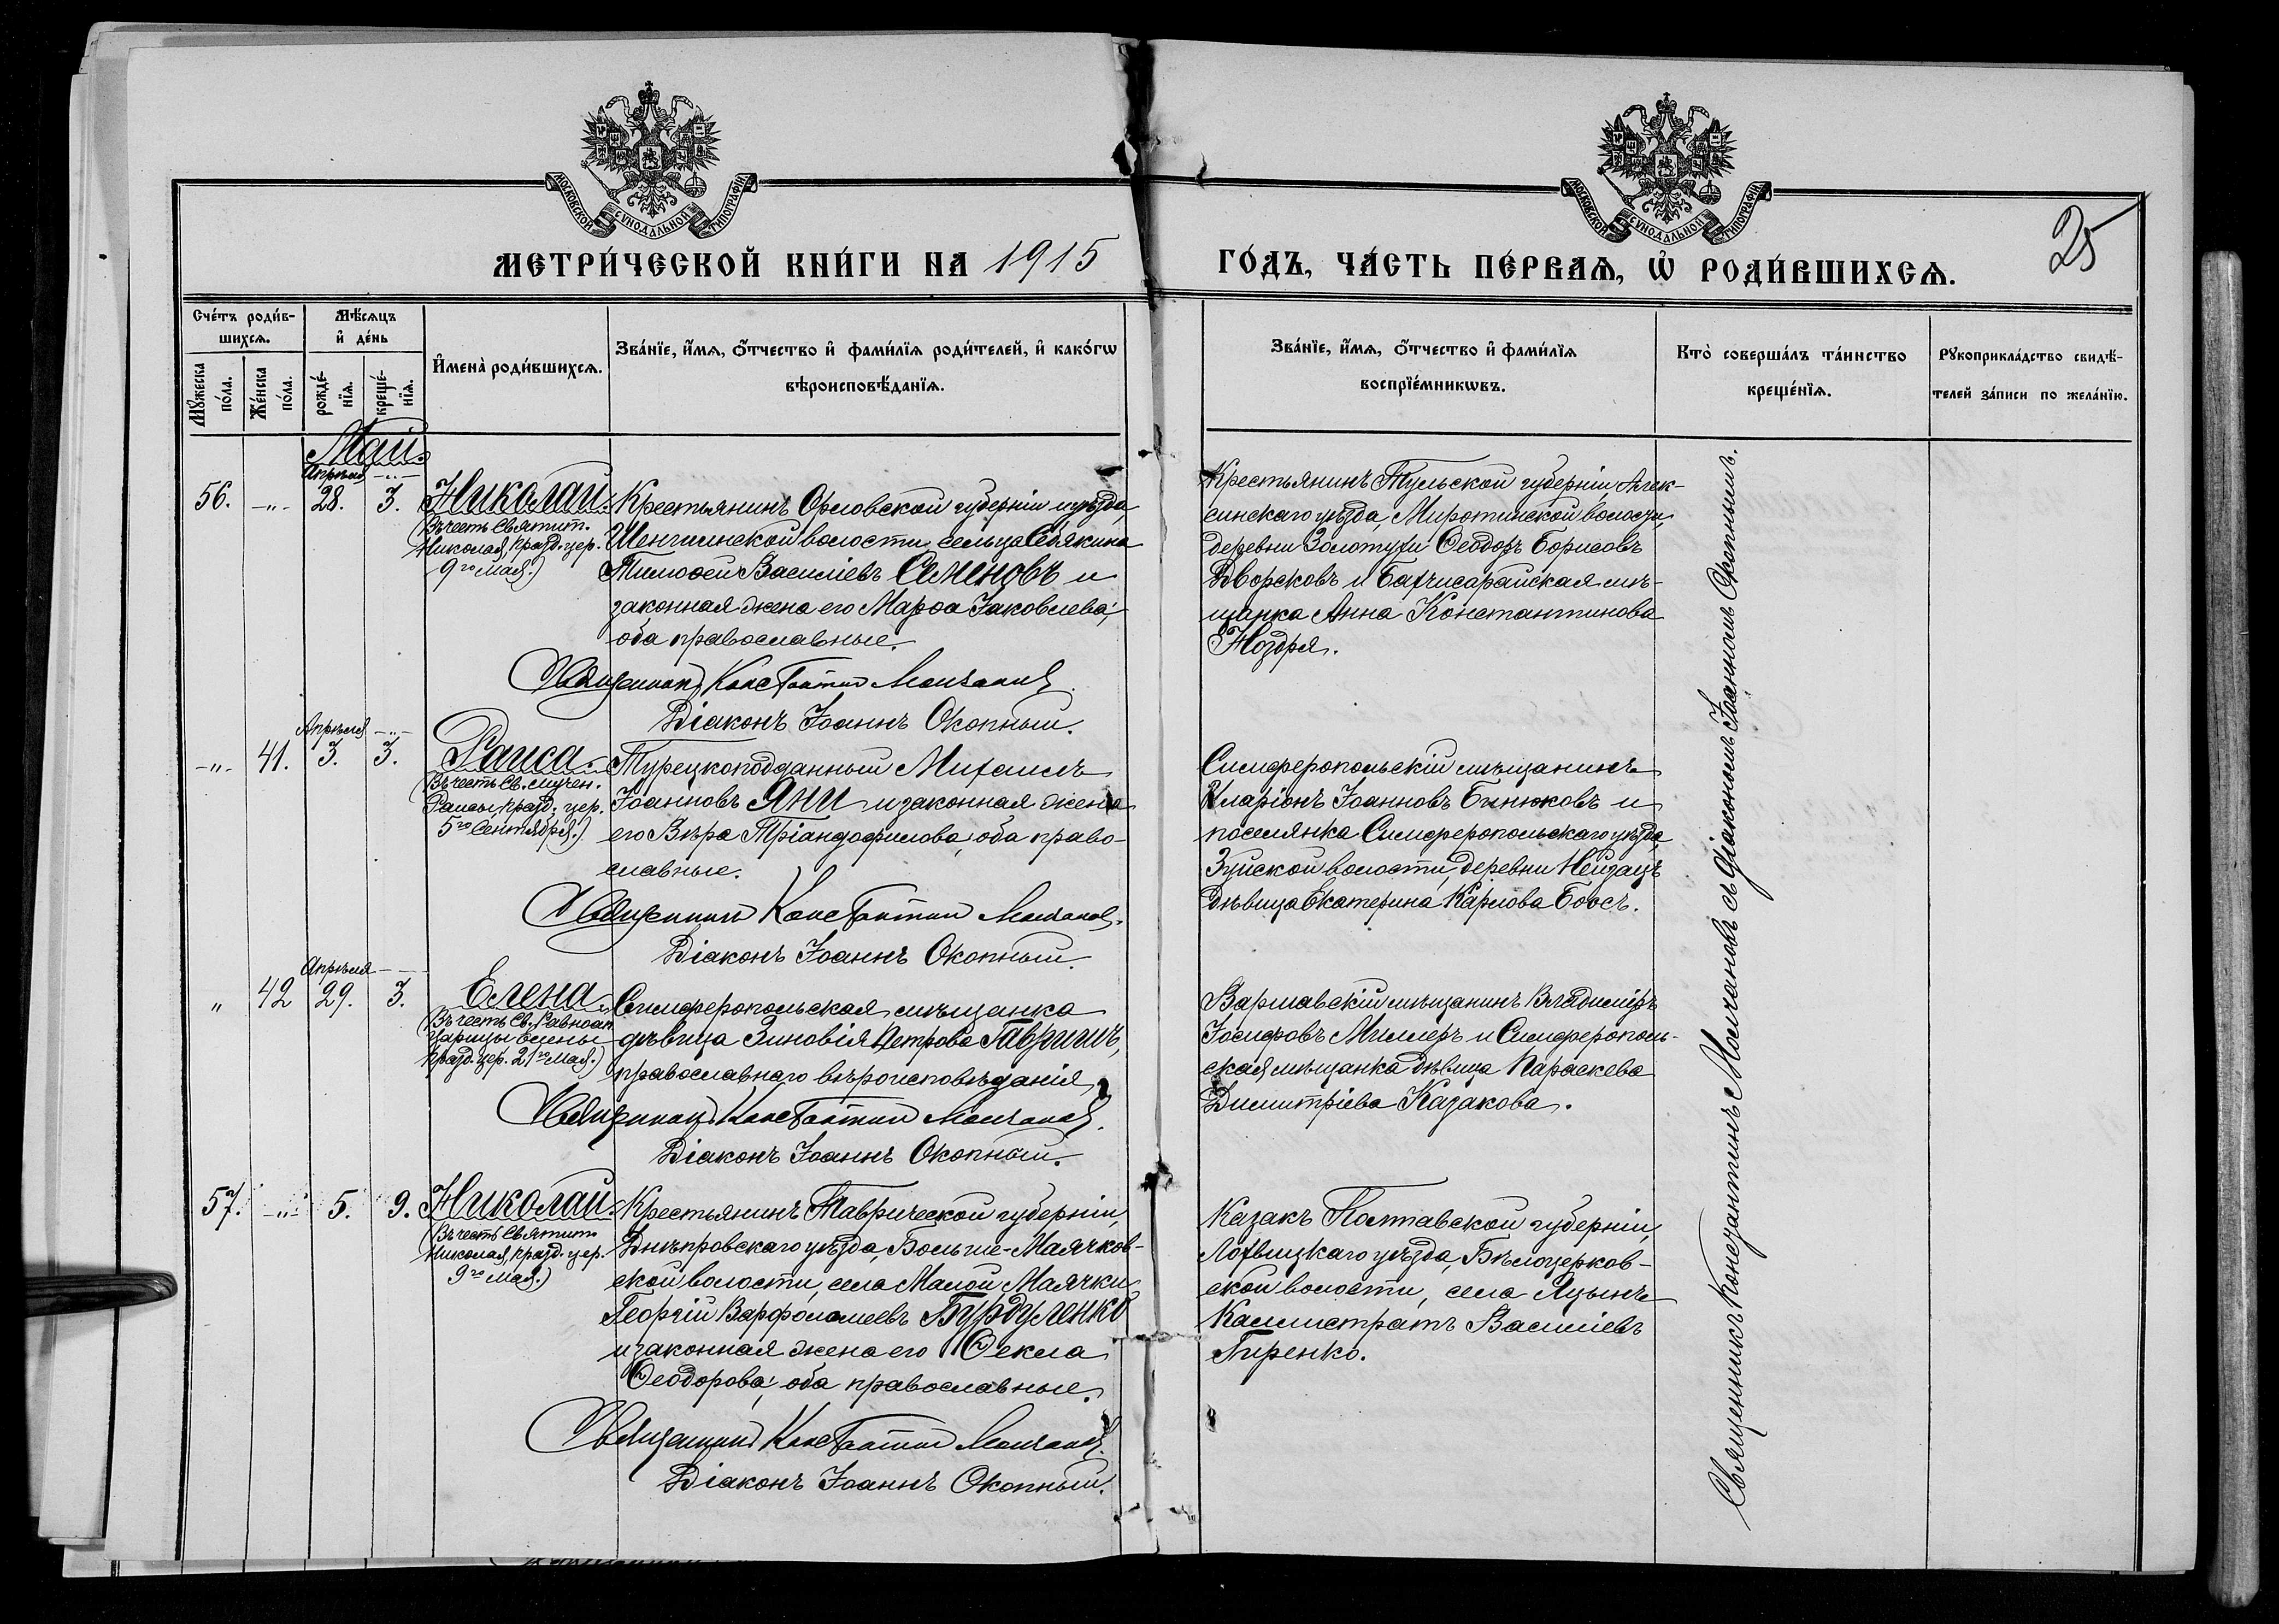 МОСКОВСКОЙ СѴНОДАЛЬНОЙ ТИПОГРАФІИ
МОСКОВСКОЙ СѴНОДАЛЬНОЙ ТИПОГРАФІИ
МЕТРИ́ЧЕСКОЙ КНИ́ГИ НА 1915
ГО́ДЪ, ЧА́СТЬ ПЕ́РВАѦ, Ѡ҆ РОДИ́ВШИХСѦ.
25
Сче́тъ роди́в-
шихсѧ.
Мꙋ́жеска по́ла.
Же́нска по́ла.
Мѣ́сѧцъ
и҆ де́нь
рожде́-
нїѧ.
креще́-
нїѧ.
И҆мена̀ роди́вшихсѧ.
Зва́нїе, и҆́мѧ, ѻ҆́тчество и҆ фами́лїѧ роди́телей, и҆ како́гѡ
вѣроисповѣ́данїѧ.
Зва́нїе, и҆́мѧ, ѻ҆́тчество и҆ фами́лїѧ
воспрїе́мникѡвъ.
Кто̀ соверша́лъ та́инство
креще́нїѧ.
Рꙋкоприкла́дство свидѣ́-
телей за́писи по жела́нїю.
Май.
Апрѣля -"-
56. -"- 28. 3. Николай.
(Въ честь Святит.
Николая, празд. цер.
9го Мая.)
Крестьянинъ Орловской губерніи и уѣзда,
волости, сельца Себякина
Тимоѳей Василіевъ Семеновъ и
законная жена его Марѳа Іаковлева,
оба православные.
Священникъ Константинъ Молчановъ.
Діаконъ Іоаннъ Окопный.
Крестьянинъ Тульской губерніи, Алек-
синскаго уѣзда, Миротинской волости,
деревни Золотухи Ѳеодоръ Борисовъ
Дворсковъ и Бахчисарайская мѣ-
щанка Анна Константинова
Ноздря.
Апрѣля -"-
-"- 41. 3. 3. Раиса.
(Въ честь Св. мучен.
Раисы, празд. цер.
5го Сентября.)
Турецкоподданный Михаилъ
Іоанновъ Яни и законная жена
его Вѣра Тріандофилова, оба право-
славные.
Священникъ Константинъ Молчановъ.
Діаконъ Іоаннъ Окопный.
Симферопольскій мѣщанинъ
Иларіонъ Іоанновъ Бинюковъ и
поселянка Симферопольскаго уѣзда,
Зуйской волости, деревни Нейзацъ
дѣвица Екатерина Карлова Боосъ.
Апрѣля -"-
" 42 29. 3. Елена.
(Въ честь Св. Равноап.
Царицы Елены
празд. цер. 21го Мая.)
Симферопольская мѣщанка
дѣвица Зиновія Петрова Гавришъ,
православнаго вѣроисповѣданія.
Священникъ Константинъ Молчановъ.
Діаконъ Іоаннъ Окопный.
Варшавскій мѣщанинъ Владиміръ
Іосифовъ Миллеръ и Симферополь-
ская мѣщанка дѣвица Параскева
Димитріева Казакова.
57. -"- 5. 9. Николай.
(Въ честь Святит.
Николая, празд. цер.
9го Мая.)
Крестьянинъ Таврической губерніи,
Днѣпровскаго уѣзда, Больше-Маячков-
ской волости, села Малой Маячки
Георгій Варфоломеевъ Бурдуленко
и законная жена его Ѳекла
Ѳеодорова, оба православные.
Священникъ Константинъ Молчановъ.
Діаконъ Іоаннъ Окопный.
Казакъ Полтавской губерніи,
Лохвицкаго уѣзда, Бѣлоцерков-
ской волости, села Яцынъ
Каллистратъ Василіевъ
Гиренко.
Священникъ Константинъ Молчановъ съ діакономъ Іоанномъ Окопнымъ.